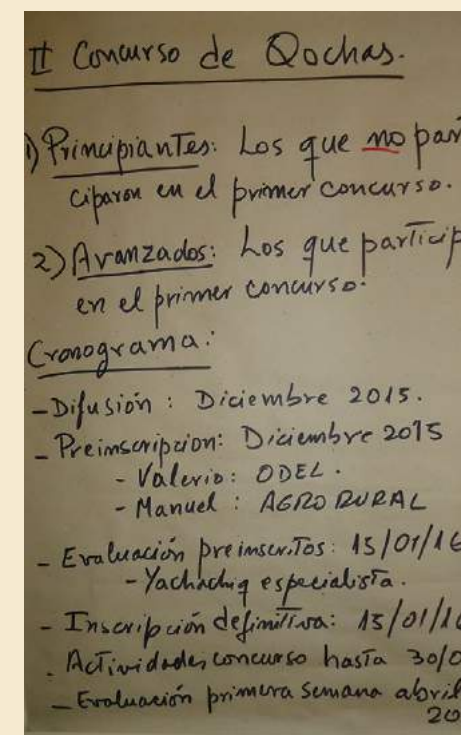 II Concurso de Qochas.
1) Principiantes: Los que no par
ciparon en el primer concurso.
2) Avanzados: Los que particip
en el primer concurso.
Cronograma:
- Difusión : Diciembre 2015.
- Preinscripcion: Diciembre 2015
- Valerio: ODEL.
- Manuel : AGRO RURAL
- Evaluación preinscritos: 15/01/16
- Yachachiq especialista.
- Inscripción definitiva: 15/01/16
- Actividades concurso hasta 30/0
- Evaluación primera semana abril
20